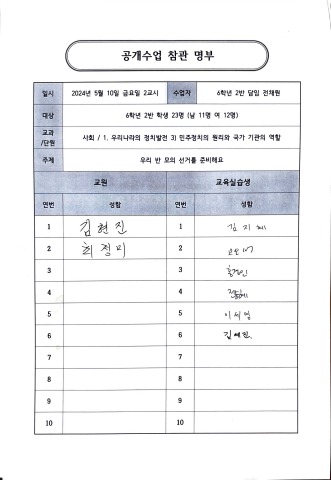 공개수업 참관 명부
일시 2024년 5월 10일 금요일 2교시 수업자 6학년 2반 담임 전채원
대상 6학년 2반 학생 23명 (남 11명 여 12명)
교과/단원 사회 / 1. 우리나라의 정치발전 3) 민주정치의 원리와 국가 기관의 역할
주제 우리 반 모의 선거를 준비해요
교원 교육실습생
연번 성함 연번 성함
1 김현진 1 김지혜
2 최정미 2
3 3
4 4
5 5 이세영
6 6 김예원
7 7
8 8
9 9
10 10